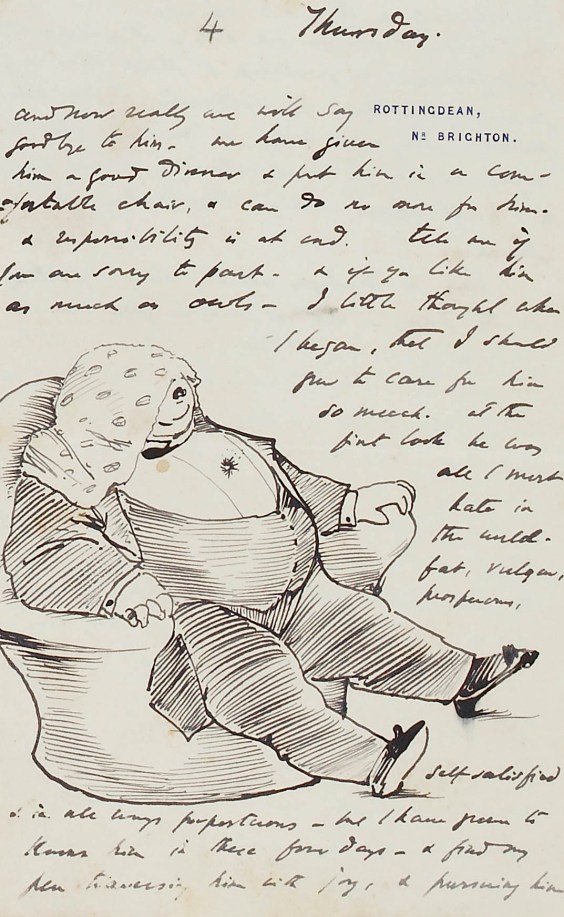 4 Thursday.
ROTTINGDEAN,
Nr. BRIGHTON.
and now really we will say
goodbye to him - we have given
him a good dinner & put him in a com-
fortable chair, & can do no more for him.
& responsibility is at end. tell me if
you are sorry to part - & if you like him
as much as owls - I little thought when
I began, that I should
grow to care for him
so much. at the
first look he was
all I most
hate in
the world -
fat, vulgar,
prosperous,
self satisfied
& in all ways - but I have grown to
know him in these four days - & find my
pen him with joy, & pursuing him